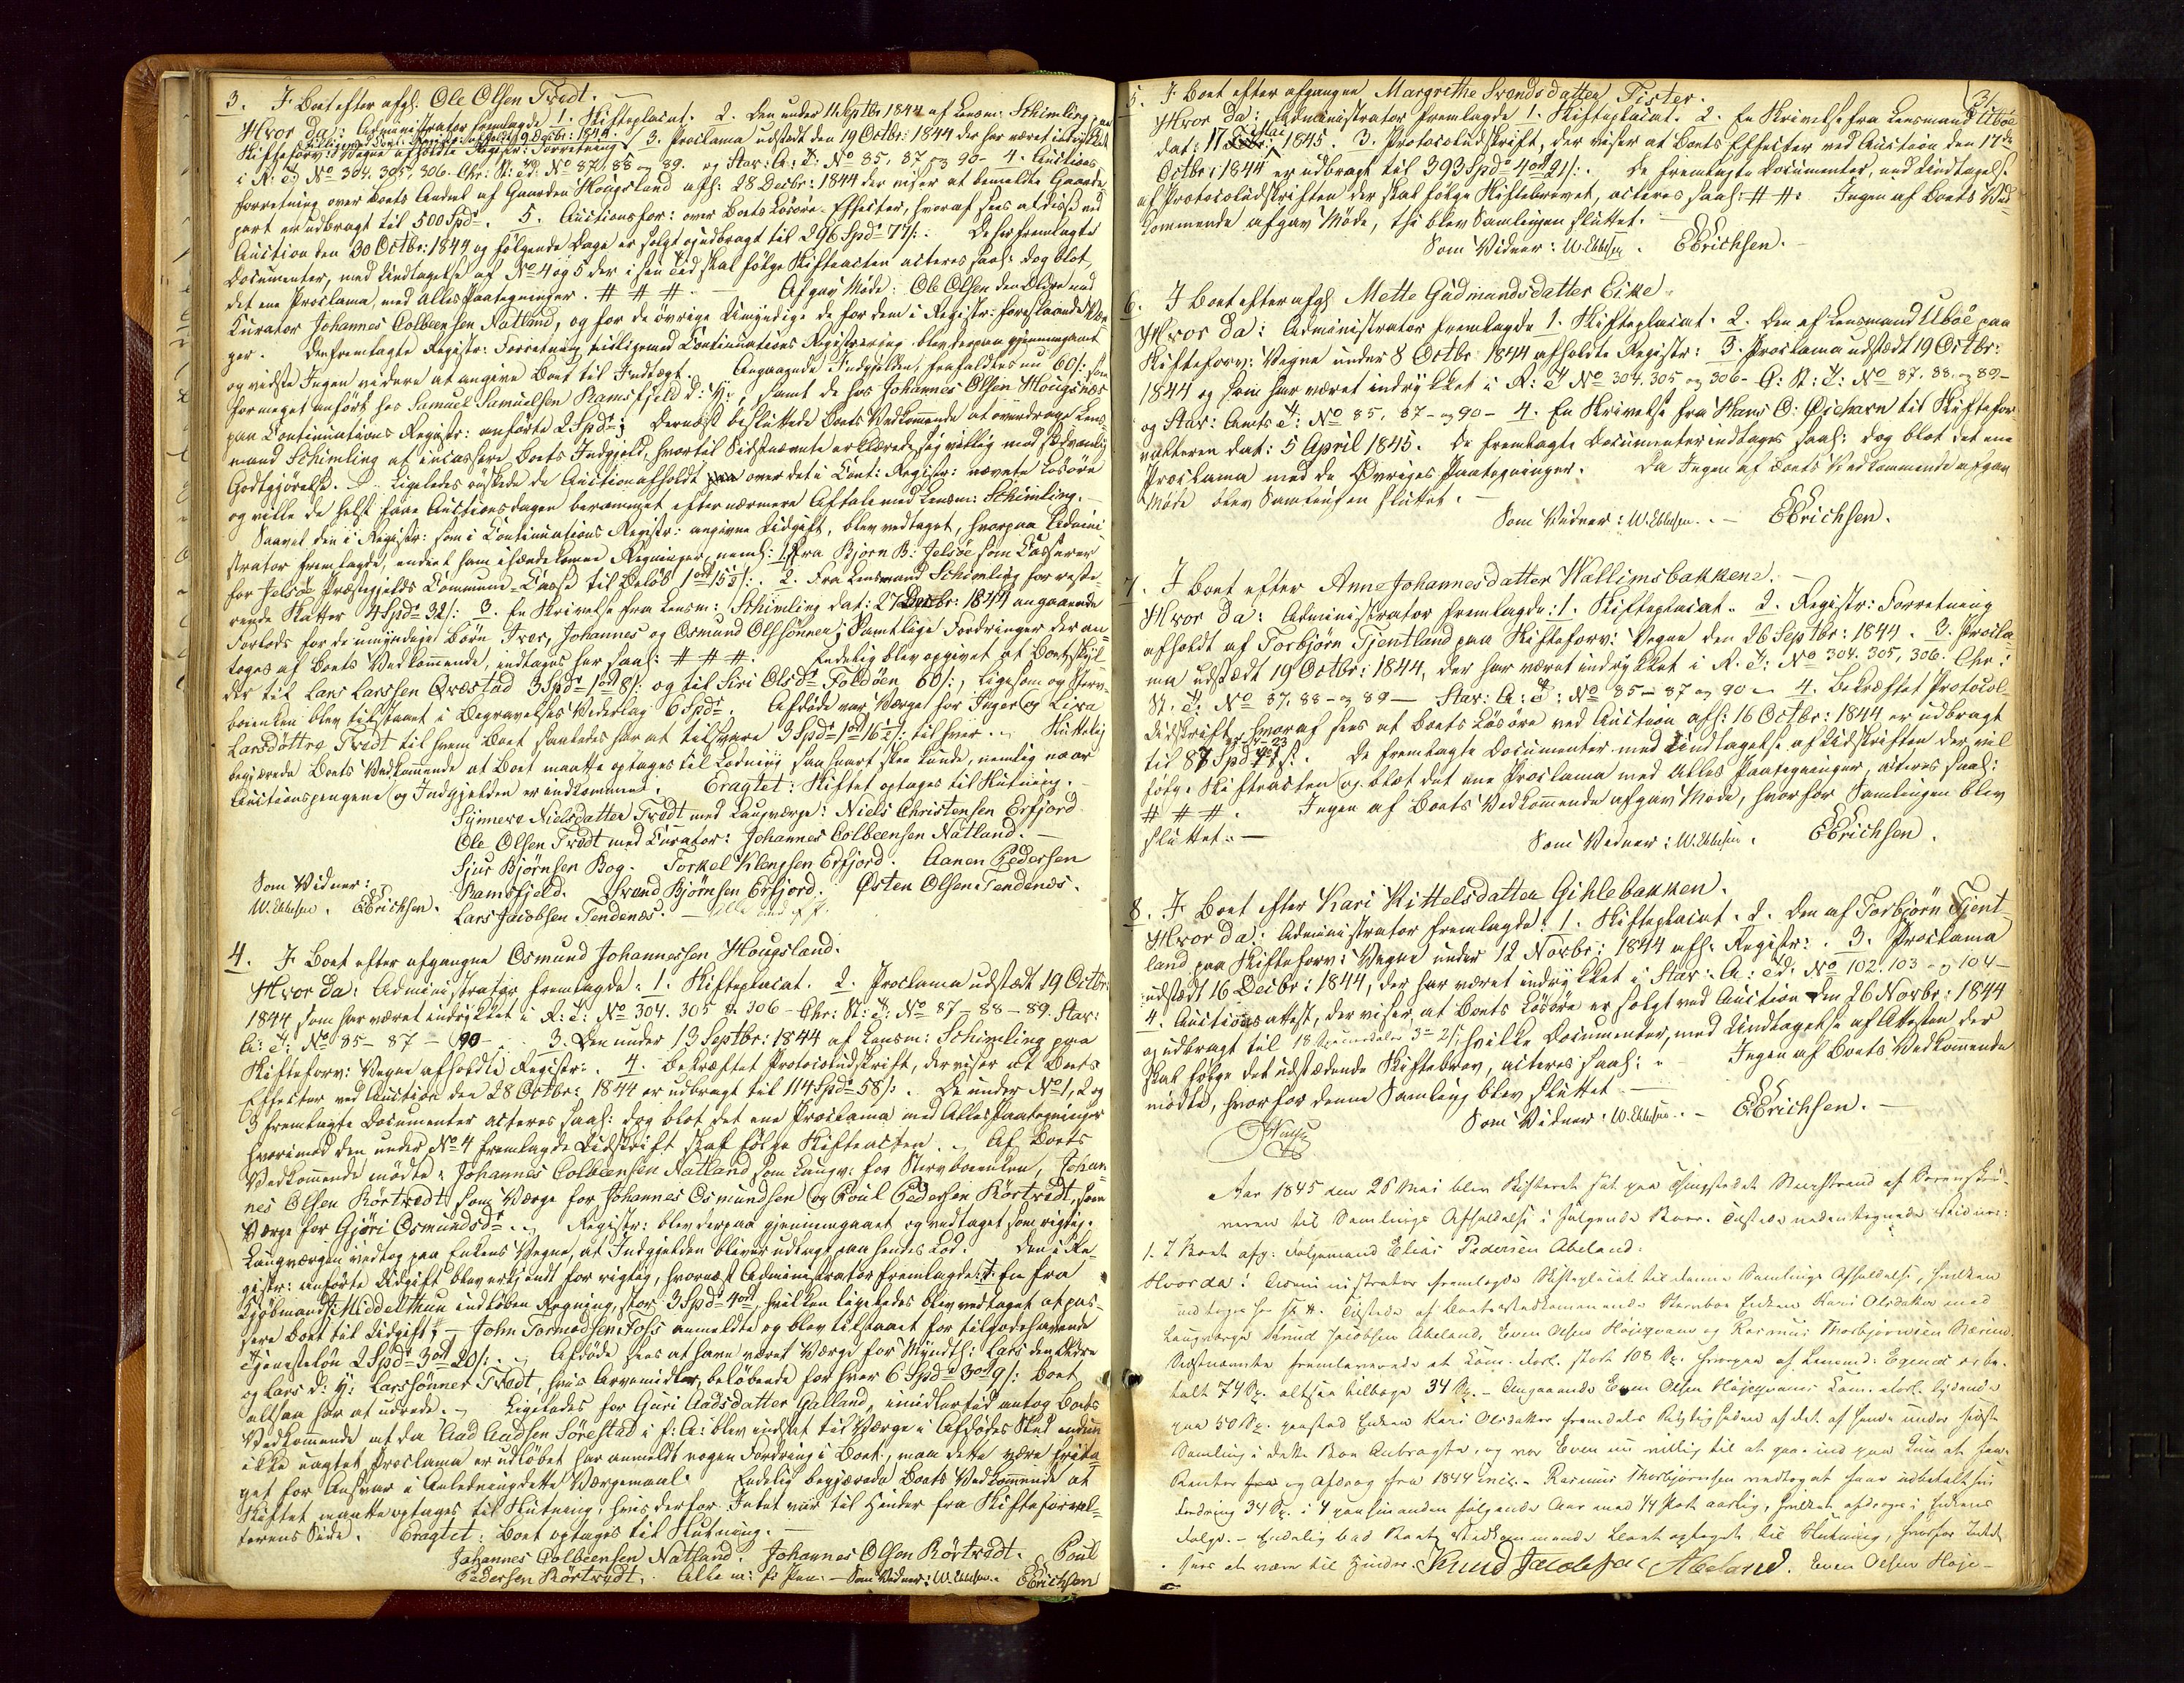 3. I Boet efter afg: Ole Olsen Trædt. —
Hvor da: Administrator fremlagde 1. Skifteplacat. 2. Den under 11 Septbr 1844 af Lensm: Schimling paa
Skifteforv: Vegne afholdte Registr: Forretning 3. Proclama udstædt den 19 Octbr: 1844 der har været indrykket
i R: T: No 304. 305. 306. Chr: St: T: No 87. 88 og 89. og Stav: A: T: No 85, 87 og 90 – 4. Auctions
forretning over Boets Andeel af Gaarden Hougsland afh: 28 Decbr: 1844 der viser at bemeldte Gaarde
part er udbragt til 500 Spdr. 5. Auctionsfor: over Boets Løsøre-Effecter, hvoraf sees at disse ved
Auction den 30 Octbr: 1844 og følgende Dage er solgt og udbragt til 296 Spdr 77 s:. De her fremlagte
Documenter, med Undtagelse af No 4 og 5 der i sin Tid skal følge Skifteacten acteres saal: dog blot
det ene Proclama, med Alles Paategninger. # # #. — Afgav Møde: Ole Olsen den Ældre med
Curator Johannes Colbeensen Natland, og for de øvrige Umyndige de for dem i Registr: foreslaaede Vær
ger. Den fremlagte Registr: Forretning tilligemed Continuations Registrering blev derpaa gjennemgaaet
og vidste Ingen videre at angive Boet til Indtægt. Angaaende Indgjelden, frafaldtes nu 60 s: som
formeget anført hos Samuel Samuelsen Ramsfjeld d: Y:, samt de hos Johannes Olsen Hougsnæs
paa Continuations Registr: anførte 2 Spdr; Dernæst besluttede Boets Vedkommende at overdrage Lens
mand Schimling at incassere Boets Indgjeld, hvortil Sidstnævnte erklærede sig villig mod sædvanlig
Godtgjørelse. Ligeledes ønskede de Auction afholdt over det i Cont: Registr: nævnte Løsøre
og ville de helst have Auctionsdagen berammet efter nærmere Aftale med Lensm: Schimling. —
Saavel den i Registr: som i Continuations Registr: angivne Udgift, blev vedtaget, hvorpaa Admini
strator fremlagde, endeel ham ihændekomne Regninger, neml: 1, fra Bjørn B: Jelsøe som Casserer
for Jelsøe Præstegjelds Commune-Casse til Beløb 1 ort 15½ s:. 2. Fra Lensmand Schimling for reste
rende Skatter 4 Spdr 32 s: 3. En Skrivelse fra Lensm: Schimling dat: 27 Decbr: 1844 angaaende
Forlods for de umyndige Børn Iver, Johannes og Osmund Olssønner; Samtlige Fordringer der an
toges af Boets Vedkommende, indtages her saal: # # #. Endelig blev opgivet at Boet skyl
der til Lars Larssen Qvæstad 3 Spdr 1 ort 8 s: og til Siri Olsdr Foldøen 60 s:, ligesom og Sterv
boenken blev tilstaaet i Begravelses Vederlag 6 Spdr. Afdøde var Værge for Inger og Liva
Larsdøttre Trædt til hvem Boet saaledes har at tilsvare 3 Spdr 1 ort 16½ s: til hver. — Skiftelig
begjærede Boets Vedkommende at Boet maatte optages til Lodning saasnart skee kunde, nemlig naar
Auctionspengene og Indgjelden er indkommen. Eragtet: Skiftet optages til Slutning.
Synnere Nielsdatter Trædt med Laugværge: Niels Christensen Erfjord
Ole Olsen Trædt med Curator: Johannes Colbeensen Natland. —
Sjur Bjørnsen Bog. Torkel Klengsen Erfjord. Aanen Pedersen
Som Vidner: Ramsfjeld. Svend Bjørnsen Erfjord. Østen Olsen Tendenæs.
W. Ebbesen. EErichsen. Lars Jacobsen Tendenæs. —
4. I Boet efter afgangne Osmund Johannessen Hougsland.
Hvor da: Administrator fremlagde: 1. Skifteplacat. 2. Proclama udstædt 19 Octbr:
1844 som har været indrykket i R: T: No 304. 305 & 306 – Chr: St: T: No 87 – 88 – 89. Stav:
A: T: No 85 – 87 – 90 – . 3. Den under 13 Septbr: 1844 af Lensm: Schimling paa
Skifteforv: Vegne afholdte Registr:. 4. Bekræftet Protocoludskrift, der viser at Boets
Effecter ved Auction den 28 Octbr: 1844 er udbragt til 114 Spdr 58 s:. De under No 1, 2 og
3 fremlagte Documenter acteres saal: dog blot det ene Proclama med Alles Paategninger
hvorimod den under No 4 fremlagde Udskrift skal følge Skifteacten. — Af Boets
Vedkommende mødte: Johannes Colbeensen Natland som Laugv: for Stervboenken, Johan
nes Olsen Rørtvedt som Værge for Johannes Osmundsen og Poul Pedersen Rørtvedt, som
Værge for Gjøri Osmundsdr. — Registr: blev derpaa gjennemgaaet og vedtaget som rigtig.
Laugværgen vedtog paa Enkens Vegne, at Indgjelden bliver udlagt paa hendes Lod. Den i Re
gistr: anførte Udgift blev erkjendt for rigtig, hvornæst Administrator fremlagde: 1. En fra
Kjøbmand J: Middelthun indløben Regning, stor 3 Spdr 4 ort, hvilken ligeledes blev vedtaget at pas
sere Boet til Udgift; — John Tormodsen Foss anmeldte og blev tilstaaet for tilgodehavende
Tjenesteløn 2 Spdr 3 ort 20 s:. — Afdøde sees at have været Værge for Myndtl: Lars den Ældre
og Lars d: Y: Larssønner Trædt, hvis Arvemidler, beløbende for hver 6 Spdr 3 ort 9 s: Boet
altsaa har at udrede. — Ligeledes for Guri Aadsdatter Galland, imidlertid antog Boets
Vedkommende at da Aad Aadsen Sørestad i f: A: blev indsat til Værge i Afdødes Sted endnu
ikke uagtet Proclama er udløbet har anmeldt nogen Fordring i Boet, maa dette være frita
get for Ansvar i Anledning dette Værgemaal. Endelig begjærede Boets Vedkommende at
Skiftet maatte optages til Slutning, hvis derfor Intet var til Hinder fra Skifteforval
terens Side. Eragtet: Boet optages til Slutning. —
Johannes Colbeensen Natland. Johannes Olsen Rørtvedt. Poul
Pedersen Rørtvedt. Alle m: f: Pen. – Som Vidner: W. Ebbesen. EErichsen
5. I Boet efter afgangne Margrethe Svendsdatter Tister.
Hvor da: Administrator fremlagde 1. Skifteplacat. 2. En Skrivelse fra Lensmand Ubøe
dat: 17 1845. 3. Protocoludskrift, der viser at Boets Effecter ved Auction den 17de
Octbr: 1844 er udbragt til 393 Spdr 4 ort 21 s:. De fremlagte Documenter, med Undtagelse
af Protocoludskriften der skal følge Skiftebrevet, acteres saal: # #: Ingen af Boets Ved
kommende afgav Møde, thi blev Samlingen sluttet. —
Som Vidner: W. Ebbesen. EErichsen. —
6. I Boet efter afg: Mette Gudmundsdatter Eike.
Hvor da: Administrator fremlagde 1. Skifteplacat. 2. Den af Lensmand Ubøe paa
Skifteforv: Vegne under 8 Octbr: 1844 afholdte Registr: 3. Proclama udstædt 19 Octbr:
1844 og som har været indrykket i R: T: No 304. 305 og 306 – C: St: T: No 87. 88. og 89 –
og Stav: Amts T: No 85. 87 – og 90 – 4. En Skrivelse fra Hans O: Øiehavn til Skiftefor
valteren dat: 5 April 1845. De fremlagte Documenter indtages saal: dog blot det ene
Proclama med de Øvriges Paategninger. Da Ingen af Boets Vedkommende afgav
Møde blev Samlingen sluttet. —
Som Vidner: W. Ebbesen. — EErichsen.
7. I Boet efter Anne Johannesdatter Wallimsbakkene. —
Hvor da: Administrator fremlagde: 1. Skifteplacat. 2. Registr: Forretning
afholdt af Torbjørn Tjentland paa Skifteforv: Vegne den 26 Septbr: 1844. 3. Procla
ma udstædt 19 Octbr: 1844, der har været indrykket i R. T: No 304. 305, 306. Chr:
St. T: No 87, 88 – og 89 — Stav: A: T: No 85 – 87 og 90 – 4. Bekræftet Protocol
Udskrift hvoraf sees at Boets Løsøre ved Auction afh: 16 Octbr: 1844 er udbragt
til 87 Spd s:. De fremlagte Documenter med Undtagelse af Udskriften der vil
følge Skifteacten og blot det ene Proclama med Alles Paategninger, acteres saal:
# # #. Ingen af Boets Vedkommende afgav Møde, hvorfor Samlingen blev
sluttet. —
Som Vidner: W. Ebbesen. EErichsen.
8. I Boet efter Kari Kittelsdatter Gihlebakken.
Hvor da: Administrator fremlagde: 1. Skifteplacat. 2. Den af Torbjørn Tjent
land paa Skifteforv: Vegne under 12 Novbr: 1844 afh: Registr:. 3. Proclama
udstædt 16 Decbr: 1844, der har været indrykket i Stav: A: T: No 102. 103 – og 104 –
4. Auctionsattest, der viser, at Boets Løsøre er solgt ved Auction den 26 Novbr: 1844
og udbragt til 18 Speciesdaler 3 – 21 s; hvilke Documenter, med Undtagelse af Attesten der
skal følge det udstædende Skiftebrev, acteres saal: Ingen af Boets Vedkommende
mødte, hvorfor denne Samling blev sluttet —
Som Vidner: W. Ebbesen. — EErichsen. —
Aar 1845 den 26 Mai blev Skifteret sat paa Thingstedet Næerstrand af Sorenskri
veren til Samlings Afholdelse i følgende Boer. Tilstede undertegnede Vidner:
1. I Boet afg: Følgemand Elias Pedersen Abeland.
Hvorda: Administrator fremlagde Skifteplacat til denne Samlings Afholdelse, hvilken
indtages her #. Tilstede af Boets Vedkommende Stervboe Enken Kari Olsdatter med
Laugværge Knud Jacobsen Abeland, Even Olsen Høiegvam og Rasmus Thorbjørnsen
Sidstnævnte fremleverede et stort 108 Sp. hvorpaa af Lensmd: er be
talt 74 Sp. altsaa tilbage 34 Sp. – Angaaende Even Olsen Høiegvams lydende
paa 50 Sp. paastod Enken Kari Olsdatter fremdeles Rigtigheden af det af hende under sidste
Samling i dette Boe Andragte, og var Even nu villig til at gaae ind paa kun at faae
Renter og Afdrag fra 1844 incl. – Rasmus Thorbjørnsen vedtog at faae udbetalt sin
Fordring 34 Sp. i 4 paa hinanden følgende Aar med 1/4 Part aarlig, hvilket i Enkens
Følge. – Endelig bad Boets Vedkommende Boet optaget til Slutning, hvorfor Intet
sees at være til Hinder. Knud Jacobsen Abeland. Even Olsen Høie–